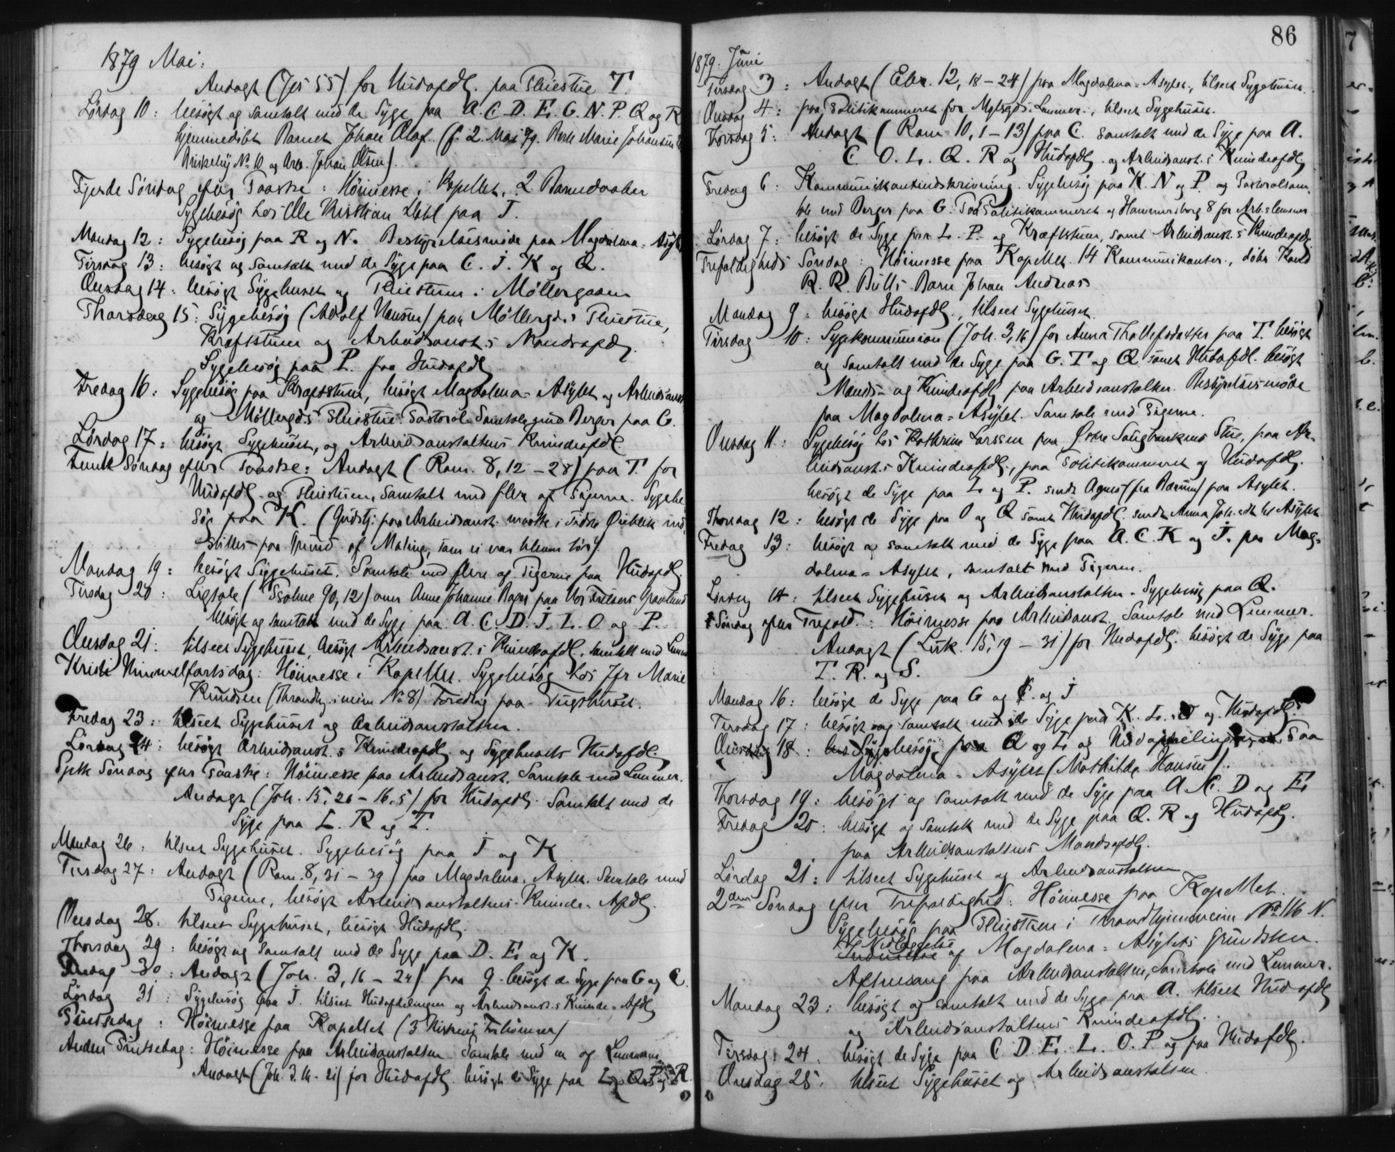 1879 Mai:
Andagt (Jes 55) for Hudafdl. paa Pleiestue T.
Lørdag 10: besøgt og samtalt med de Syge paa A. C. D. E. G. N. P. Q og R
hjemmedøbt Barnet Johan Olaf (f. 2. Mai 79.
No. 10 og Arb. Johan Olsen).
Fjerde Søndag efter Paaske: Høimesse i Kapellet, 2 Barnedaaber
Sygebesøg hos Ole Kristian paa I.
Mandag 12: Sygebesøg paa R og N. Bestyrelsesmøde paa Magdalena-Asylet
Tirsdag 13: besøgt og samtalt med de Syge paa C. I. K og Q.
Onsdag 14: besøgt Sygehuset og Pleiestuen i Møllergaden
Thorsdag 15: Sygebesøg (Adolf Hansen) paa Møllergds Pleiestue,
Kræftstuen og Arbeidsanst.s Mandsafdl.
Sygebesøg paa P. fra Hudafdl
Fredag 16: Sygebesøg paa Kræftstuen, besøgt Magdalena-Asylet og Arbeidsanst
og Møllergds Pleiestue. Pastoral-Samtale med Berger paa G.
Lørdag 17: besøgt Sygehuset, og Arbeidsanstaltens Kvindeafdl.
Femte Søndag efter Paaske: Andagt (Rom. 8, 12-28) paa T for
Hudafdl. og Pleiestuen, Samtalt med flere af Pigerne. Sygebe-
søg paa K. (Gudstj. paa Arbeidsanst. maatte i sidste Øieblik ind-
stilles paa Grund af Maling, som ei var bleven tør).
Mandag 19: besøgt Sygehuset. Samtale med flere af Pigerne paa Hudafdl
Tirsdag 20: Ligtale (Psalme 90, 12) over Anne Johanne paa Vor Frelsers Gravlund
besøgt og samtalt med de Syge paa A. C. D. I. L. O og P.
Onsdag 21: tilseet Sygehuset, besøgt Arbeidsanst.s Kvindeafdl, samtalt med
Kristi Himmelfartsdag: Høimesse i Kapellet. Sygebesøg hos Jfr Marie
Knudsen (Throndhjemsvn No 8) Foredrag paa Tugthuset.
Fredag 23: tilseet Sygehuset og Arbeidsanstalten.
Lørdag 24: besøgt Arbeidsanst.s Kvindeafdl. og Sygehusets Hudafdl.
Sjette Søndag efter Paaske: Høimesse paa Arbeidsanst. Samtale med Lemmer.
Andagt (Joh. 15, 26-16, 5) for Hudafdl. Samtalt med de
Syge paa L. R og T.
Mandag 26: tilseet Sygehuset. Sygebesøg paa I og K
Tirsdag 27: Andagt (Rom. 8, 31-39) paa Magdalena. Asylet. Samtale med
Pigerne, besøgt Arbeidsanstaltens Kvinde-Afdl.
Onsdag 28. tilseet Sygehuset, besøgt Hudafdl.
Thorsdag 29: besøgt og samtalt med de Syge paa D. E. og K.
Fredag 30: Andagt (Joh. 3, 16-24) paa Q. besøgt de Syge paa G og C.
Lørdag 31: Sygebesøg paa I. tilseet Hudafdelingen og Arbeidsanst.s Kvinde-Afdl
Pintsedag: Høimesse paa Kapellet
Anden Pintsedag: Høimesse paa Arbeidsanstalten Samtale med en af Lemmerne
Andagt (Joh. 3. 16-21) for Hudafdl. besøgt de Syge paa L, Q P og R.
86
1879. Juni
Tirsdag 3: Andagt (Ebr. 12, 18-24) paa Magdalena-Asylet, tilseet Sygehuset.
Onsdag 4: paa Politikammeret for Lemmer, tilseet Sygehuset.
Thorsdag 5: Andagt (Rom 10, 1-13) paa C. samtalt med de Syge paa A.
C. O. L. Q. R og Hudafdl. og Arbeidsanst.s Kvindeafdl
Fredag 6: Kommunikantindskrivning. Sygebesøg paa K. N og P og Pastoralsam-
tale med Berger paa G. Paa Politikammeret og Hammersborg 8 for Arb.s Lemmer
Lørdag 7: besøgt de Syge paa L. P. og Kræftstuen, samt Arbeidsanst.s Kvindeafdl
Trefoldigheds Søndag: Høimesse paa Kapellet. 14 Kommunikanter, døbt
Barn Johan Andreas
Mandag 9: besøgt Hudafdl., tilseet Sygehuset.
Tirsdag 10: Sygekommunion (Joh. 3, 16) for Anna Thollefsdatter paa T besøgt
og samtalt med de Syge paa G. T og Q samt Hudafdl. besøgt
Mands- og Kvindeafdl paa Arbeidsanstalten. Bestyrelsesmøde
paa Magdalena-Asylet. Samtale med Pigerne.
Onsdag 11: Sygebesøg hos Kathrine Larssen paa Østre Stue, paa Ar-
beidsanst.s Kvindeafdl, paa Politikammeret og Hudafdl.
besøgt de Syge paa L og P. sendt Agnes (fra Bærum) paa Asylet.
Thorsdag 12: besøgt de Syge paa O og Q samt Hudafdl. sendt Anna Joh. til Asylet
Fredag 13: besøgt og samtalt med de Syge paa A. C. K og I. paa Mag-
dalena-Asylet, samtalt med Pigerne.
Lørdag 14: tilseet Sygehuset og Arbeidsanstalten. Sygebesøg paa Q.
1 Søndag efter Trefold.: Høimesse paa Arbeidsanst. Samtale med Lemmer.
Andagt (Luk. 15, 19-31) for Hudafdl. besøgt de Syge paa
T. R. og S.
Mandag 16: besøgt de Syge paa G og C. og I
Tirsdag 17: besøgt og samtalt med de Syge paa K. L. O og Hudafdl.
Onsdag 18: Sygebesøg paa Q og L og Hudafdelingen. Paa
Magdalena-Asylet (Mathilde Hansen).
Thorsdag 19: besøgt og samtalt med de Syge paa A. C. D og E
Fredag 20: besøgt og samtalt med de Syge paa Q. R og Hudafdl.
paa Arbeidsanstaltens Mandsafdl.
Lørdag 21: tilseet Sygehuset og Arbeidsanstalten
2den Søndag efter Trefoldighed: Høimesse paa Kapellet.
Sygebesøg paa Pleiestuen i Throndhjemsveien No 116 N.
Nedlæggelse af Magdalena-Asylets Grundsten.
Aftensang paa Arbeidsanstalten, Samtale med Lemmer.
Mandag 23: besøgt og samtalt med de Syge paa A. tilseet Hudafdl
og Arbeidsanstaltens Kvindeafdl.
Tirsdag 24. besøgt de Syge paa C D E. L. O. P og paa Hudafdl.
Onsdag 25: tilseet Sygehuset og Arbeidsanstalten.